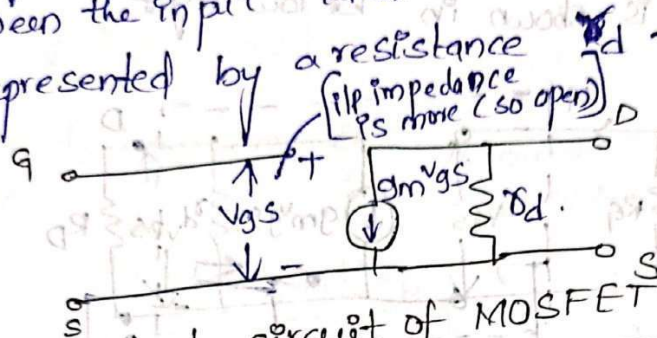 een the inpu
presented by a resistance rd.
[i/p impedance
is more (so open)]
G + D
gmvgs
vgs rd.
-
S S
circuit of MOSFET